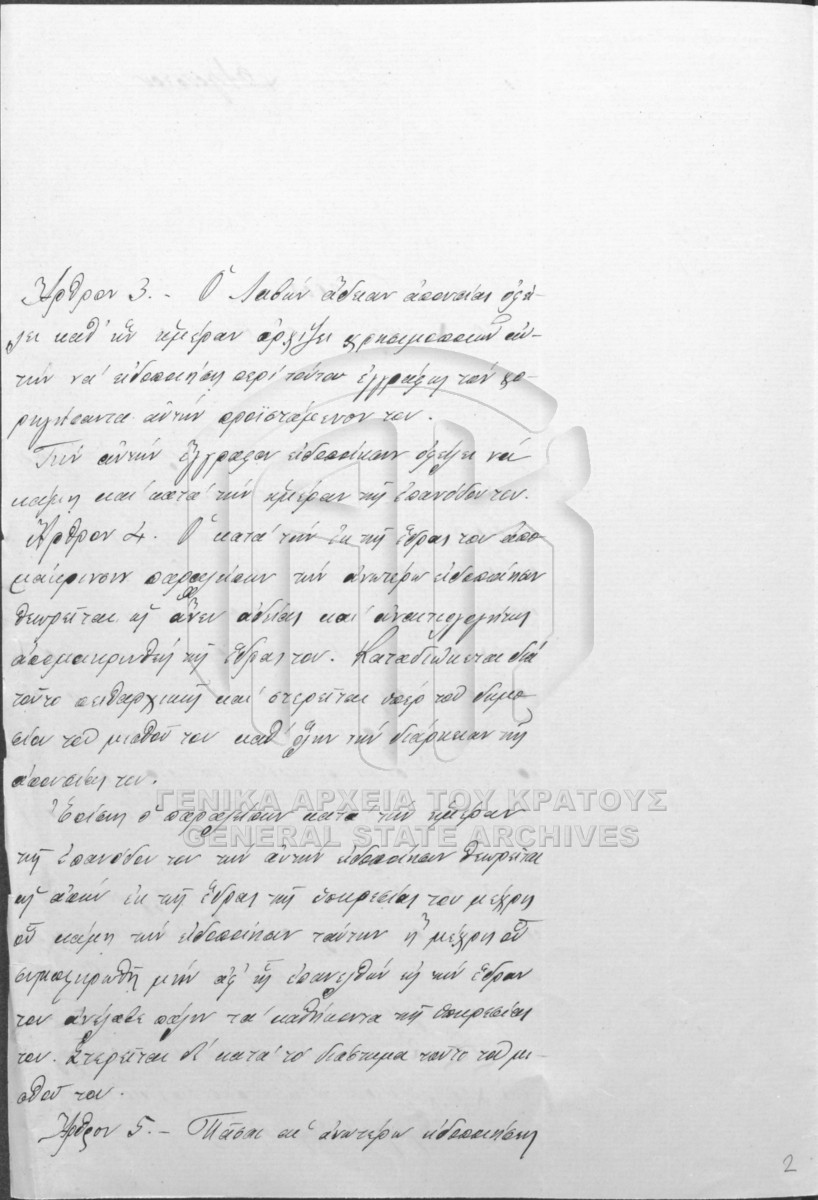 Ἄρθρον 3. – Ὁ λαβὼν ἄδειαν ἀπουσίας ὀφεί-
λει καθ' ἣν ἡμέραν ἀρχίζει χρησιμοποιῶν αὐ-
τὴν νὰ εἰδοποιήσῃ περὶ τούτου ἐγγράφως τὸν χο-
ρηγήσαντα αὐτὴν προϊστάμενόν του.
Τὴν αὐτὴν ἔγγραφον εἰδοποίησιν ὀφείλει νὰ
κάμῃ καὶ κατὰ τὴν ἡμέραν τῆς ἐπανόδου του.
Ἄρθρον 4. Ὁ κατὰ τὴν ἐκ τῆς ἕδρας του ἀπο-
μάκρυνσιν παραλείπων τὴν ἀνωτέρω εἰδοποίησιν
θεωρεῖται ὡς ἄνευ ἀδείας καὶ ἀναιτιολογήτως
ἀπομακρυνθεὶς τῆς ἕδρας του. Καταδιώκεται διὰ
τοῦτο πειθαρχικῶς καὶ στερεῖται ὑπὲρ τοῦ δημο-
σίου τοῦ μισθοῦ του καθ' ὅλην τὴν διάρκειαν τῆς
ἀπουσίας του.
Ἐπίσης ὁ παραλείπων κατὰ τὴν ἡμέραν
τῆς ἐπανόδου του τὴν αὐτὴν εἰδοποίησιν θεωρεῖται
ὡς ἀπὼν ἐκ τῆς ἕδρας τῆς ὑπηρεσίας του μέχρις
οὗ κάμῃ τὴν εἰδοποίησιν ταύτην ἢ μέχρις οὗ
συμπληρωθῇ μὴν ἀφ' ἧς ἐπανελθὼν εἰς τὴν ἕδραν
του ἀνέλαβε πάλιν τὰ καθήκοντα τῆς ὑπηρεσίας
του. Στερεῖται δὲ κατὰ τὸ διάστημα τοῦτο τοῦ μι-
σθοῦ του.
Ἄρθρον 5. – Πᾶσαι αἱ ἀνωτέρω εἰδοποιήσεις
2
ΓΕΝΙΚΑ ΑΡΧΕΙΑ ΤΟΥ ΚΡΑΤΟΥΣ
GENERAL STATE ARCHIVES